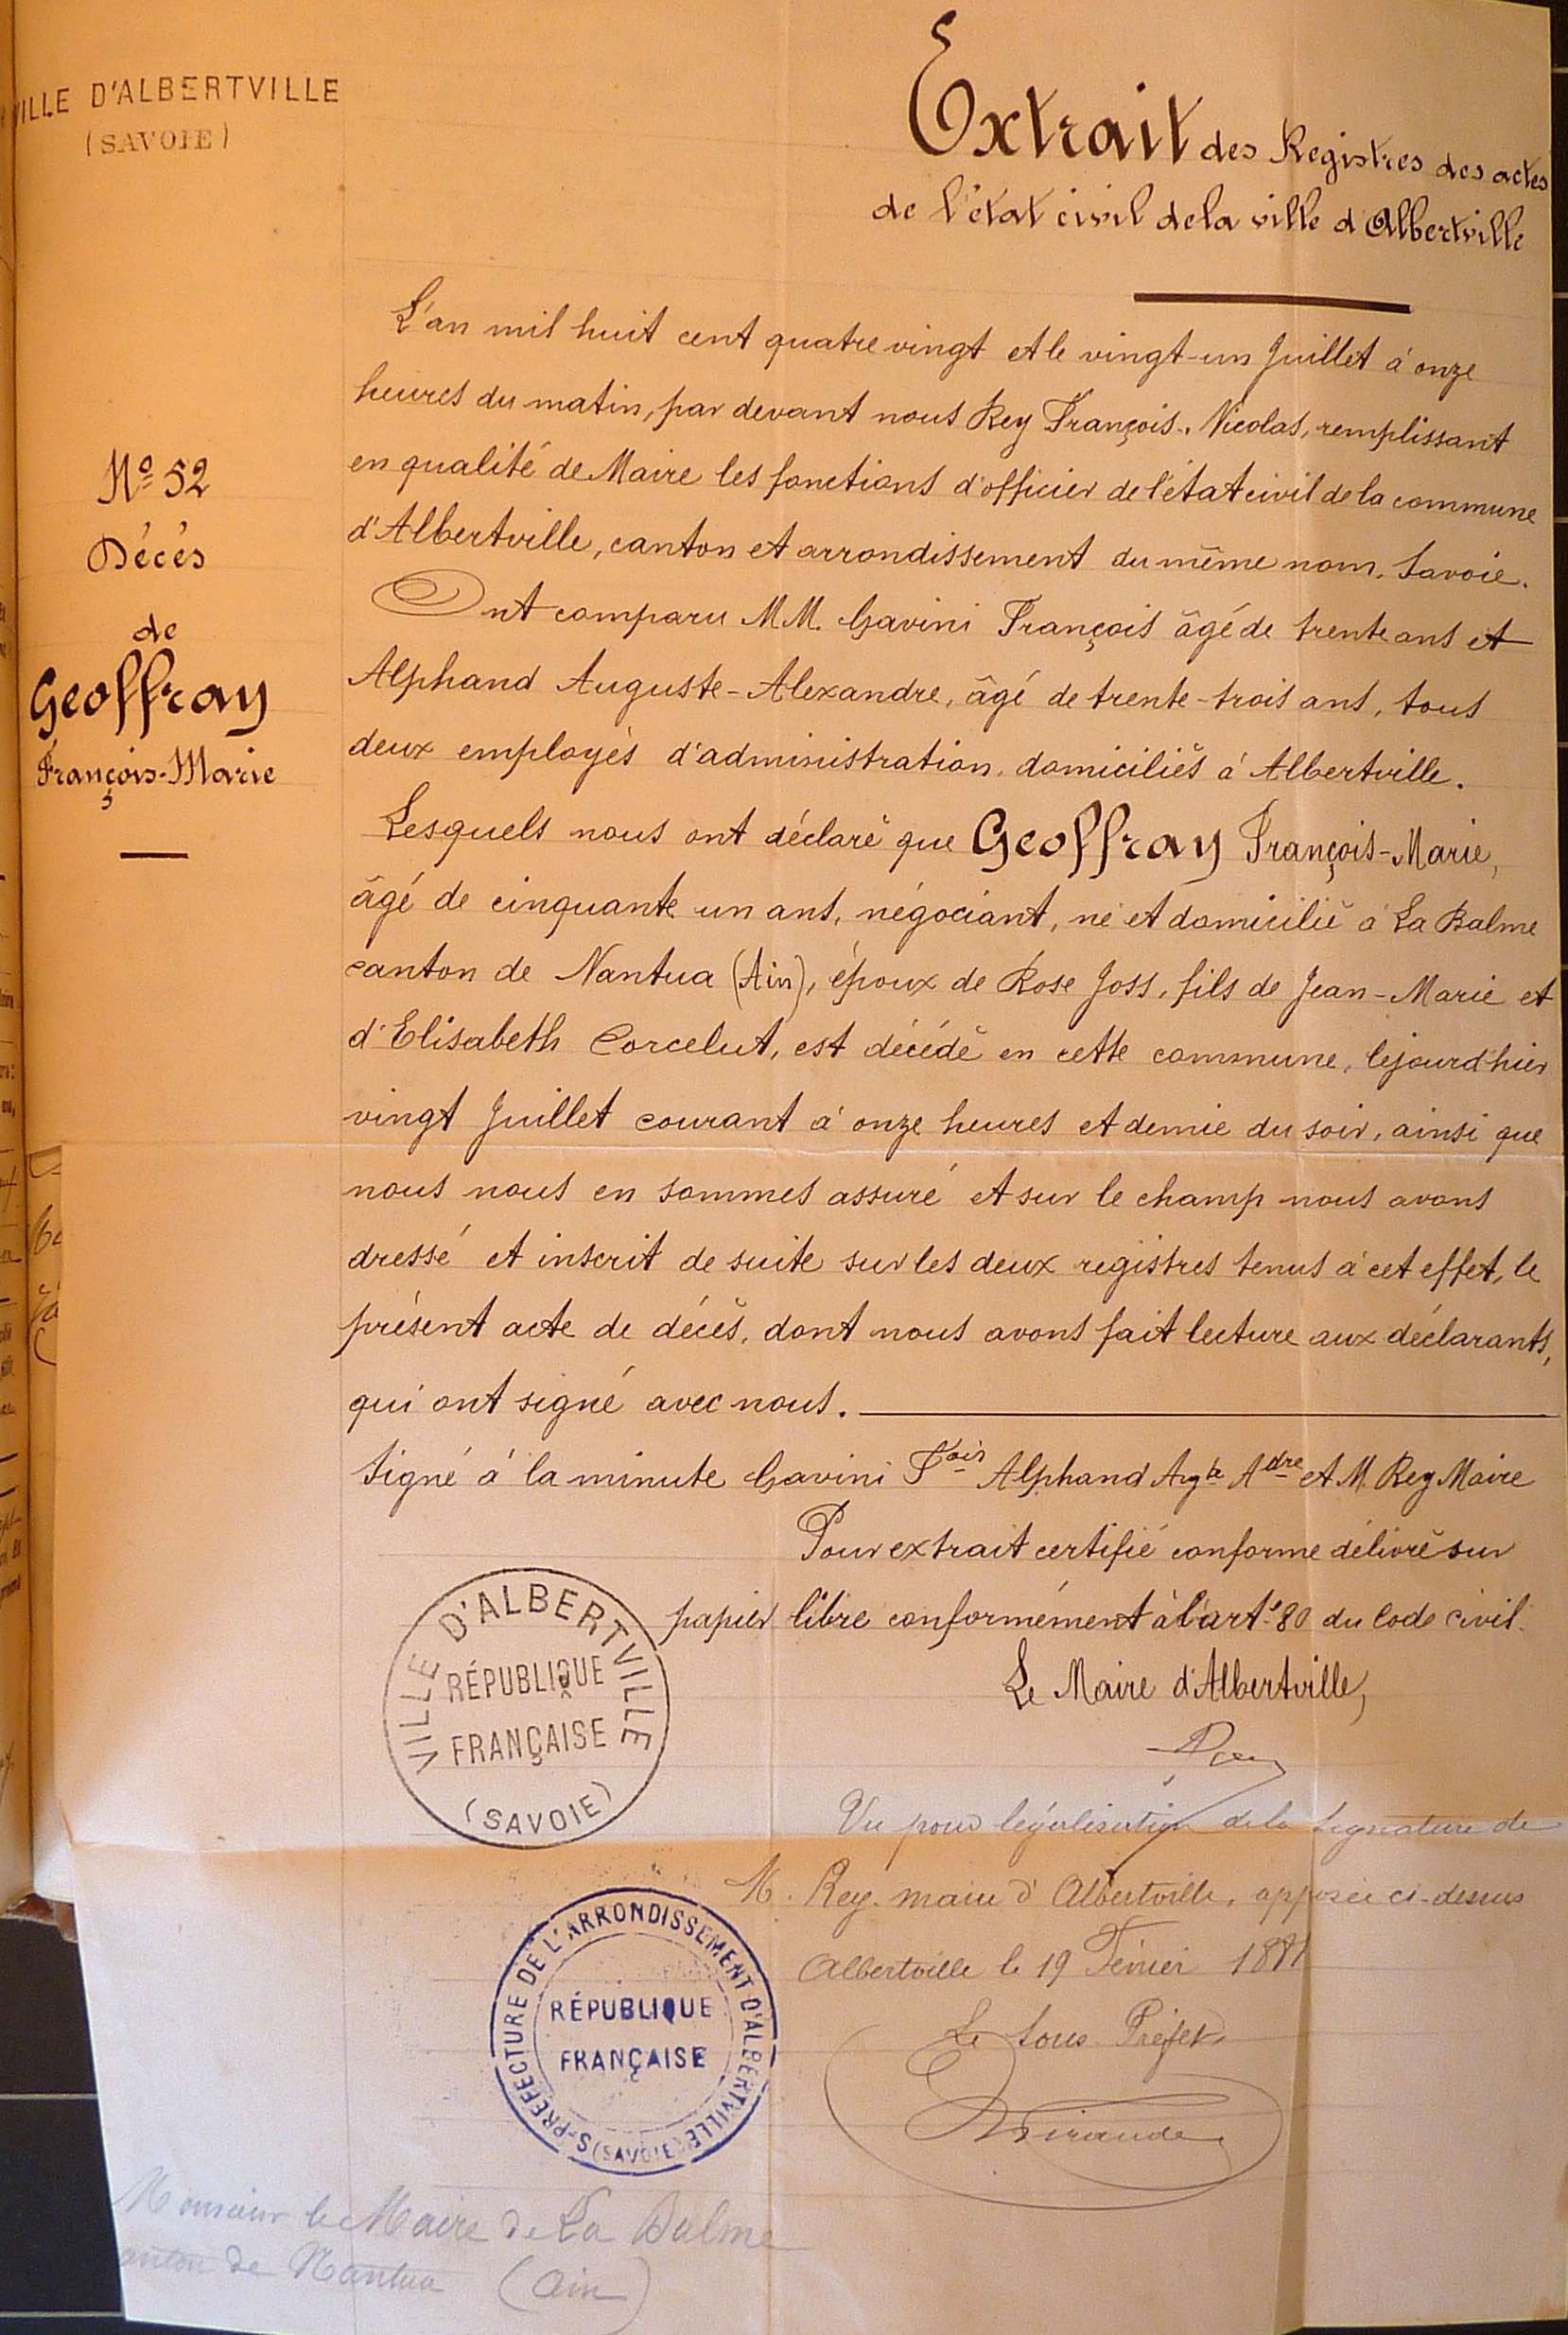 VILLE D'ALBERTVILLE
(SAVOIE)
Extrait des Registres des actes
de l'état civil de la ville d'Albertville
N° 52
Décès
de
Geoffray
François-Marie
L'an mil huit cent quatre vingt et le vingt-un Juillet à onze
heures du matin, par devant nous Rey François-Nicolas, remplissant
en qualité de Maire les fonctions d'officier de l'état civil de la commune
d'Albertville, canton et arrondissement du même nom, Savoie.
Ont comparu MM. Gavini François âgé de trente ans et
Alphand Auguste-Alexandre, âgé de trente-trois ans, tous
deux employés d'administration, domiciliés à Albertville.
Lesquels nous ont déclaré que Geoffray François-Marie,
âgé de cinquante un ans, négociant, né et domicilié à La Balme
canton de Nantua (Ain), époux de Rose Joss, fils de Jean-Marie et
d'Elisabeth Corcelut, est décédé en cette commune, le jourd'hier
vingt Juillet courant à onze heures et demie du soir, ainsi que
nous nous en sommes assuré et sur le champ nous avons
dressé et inscrit de suite sur les deux registres tenus à cet effet, le
présent acte de décès, dont nous avons fait lecture aux déclarants,
qui ont signé avec nous.
Signé à la minute Gavini Fois Alphand Agte Adre et M. Rey Maire
Pour extrait certifié conforme délivré sur
papier libre conformément à l'art. 80 du Code civil.
Le Maire d'Albertville,
Rey
VILLE D'ALBERTVILLE
RÉPUBLIQUE
FRANÇAISE
(SAVOIE)
Vu pour légalisation de la signature de
M. Rey maire d'Albertville, apposée ci-dessus
Albertville le 19 Février
Le Sous Préfet
S-PRÉFECTURE DE L'ARRONDISSEMENT D'ALBERTVILLE
RÉPUBLIQUE
FRANÇAISE
(SAVOIE)
Monsieur le Maire de La Balme
canton de Nantua (Ain)